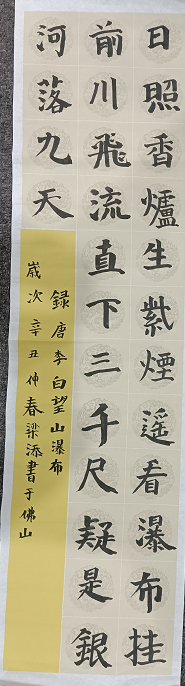 日照香爐生紫煙遥看瀑布挂
前川飛流直下三千尺疑是銀
河落九天
錄唐李白望山瀑布
嵗次辛丑仲春梁添書于佛山